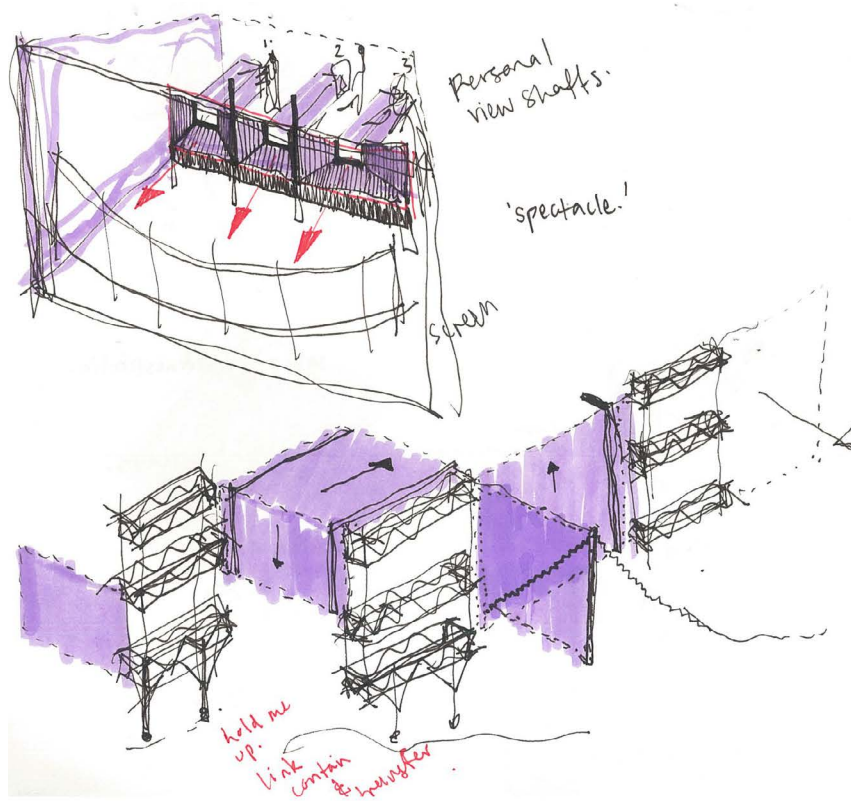 1
2
3
Personal
view shafts.
'spectacle.'
screen
hold me
up.
link
contain
&